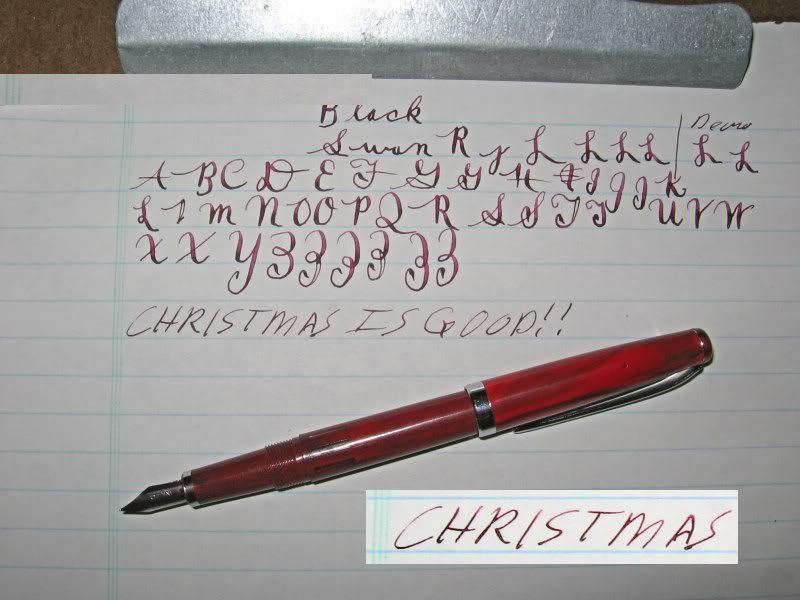 Black
Swan R y L L L L Demo L L
A B C D E F G G H I J J K
L M N O O P Q R S S T T U V W
X X Y Z Z Z Z Z Z
CHRISTMAS IS GOOD!!
CHRISTMAS